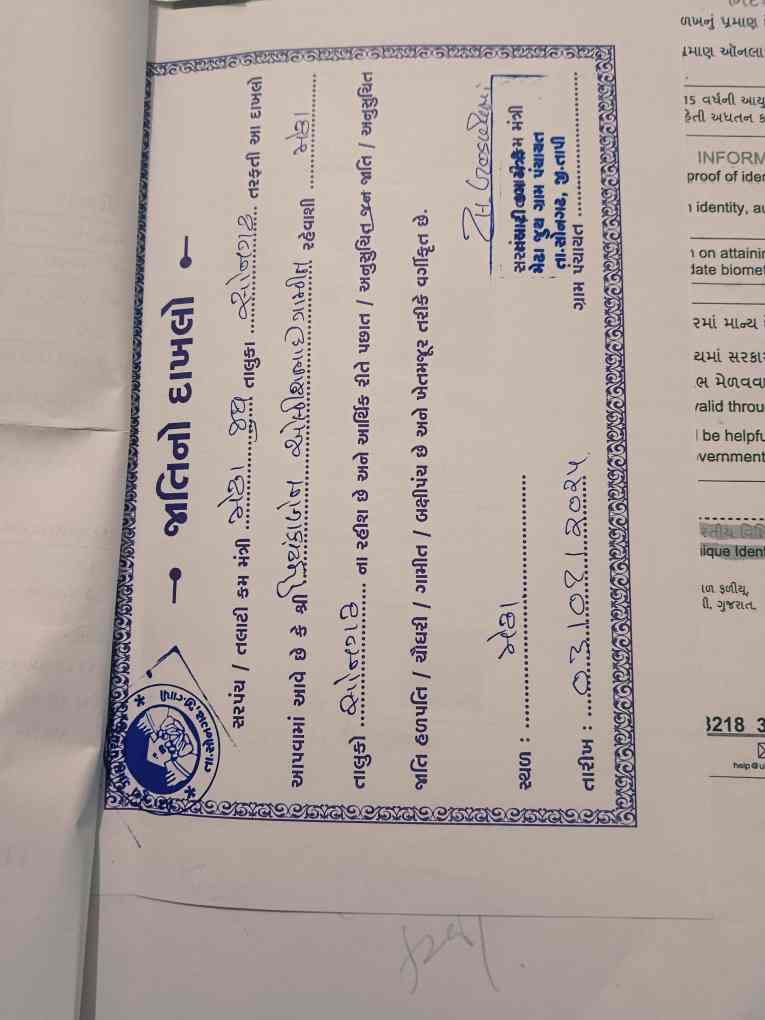 જાતિનો દાખલો
સરપંચ / તલાટી કમ મંત્રી મેઢા જુથ તાલુકા સોનગઢ તરફતી આ દાખલો
આપવામાં આવે છે કે શ્રી પ્રિયંકાબેન ગામીત રહેવાશી મેઢા
તાલુકો સોનગઢ ના રહીશ છે અને આર્થિક રીતે પછાત / અનુસુચિત જન જાતિ / અનુસુચિત
જાતિ હળપતિ / ચૌધરી / ગામીત / બક્ષીપંચ છે અને ખેતમજૂર તરીકે વર્ગીકૃત છે.
સ્થળ : મેઢા
તારીખ : ૦૩
કમ મંત્રી
મેઢા જુથ ગ્રામ પંચાયત
તા.સોનગઢ, જી.તાપી
ગ્રામ પંચાયત
તા.સોનગઢ, જી.તાપી
ળખનું પ્રમાણ
પ્રમાણ ઑનલા
15 વર્ષની આયુ
INFORM
proof of iden
identity, au
on attainin
date biomet
રમાં માન્ય
યમાં સરકા
ભ મેળવવા
valid throu
be helpfu
vernment
ique Ident
ળ ફળીયુ,
પી, ગુજરાત,
3218 3
help@u